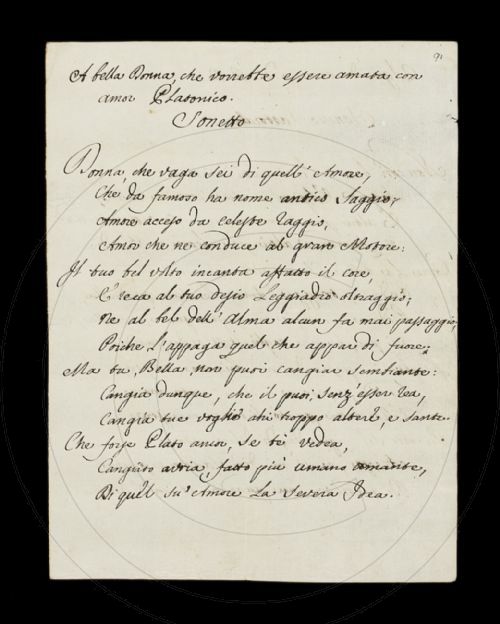 91
A bella Donna, che vorrebbe essere amata con
amor Platonico.
Sonetto
Donna, che vaga sei di quell' Amore,
Che da famoso ha nome antico Saggio,
Amore acceso da celeste raggio,
Amor che ne conduce al gran Motore:
Il tuo bel volto incanta affatto il core,
E reca al tuo desio leggiadro oltraggio;
Ne al bel dell' Alma alcun fa mai passaggio,
Poiche l'appaga quel che appar di fuore.
Ma tu, Bella, non puoi cangiar sembiante:
Cangia dunque, che il puoi, senz' esser rea,
Cangia tue voglie ahi troppo altere, e sante.
Che forse Plato ancor, se te vedea,
Cangiato avria, fatto più umano amante,
Di quel su' Amore la severa Idea.